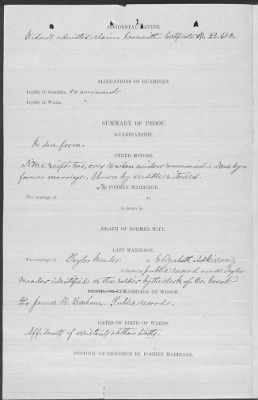 INCIDENTAL MATTER.
Widow's admitted claim herewith Certificate No.
ALLEGATIONS OF GUARDIAN.
Loyalty of Guardian, No averment
Loyalty of Wards, "
SUMMARY OF PROOF.
GUARDIANSHIP.
In due form.
OTHER MINORS.
None except two, over 16 when widow remarried & None by a
former marriage. Shown by credible witnesses.
No FORMER MARRIAGE.
The marriage of to
is shown by
DEATH OF FORMER WIFE.
LAST MARRIAGE.
The marriage of Taylor Meador to Elizabeth
is shown by public record and Taylor
Meador identified as the soldier by the clerk of Co. Court
REMARRIAGE OF WIDOW.
To James H. Public record.
DATES OF BIRTH OF WARDS.
Affidavits of assistants at their births.
CUSTODY OF CHILDREN BY FORMER MARRIAGE.